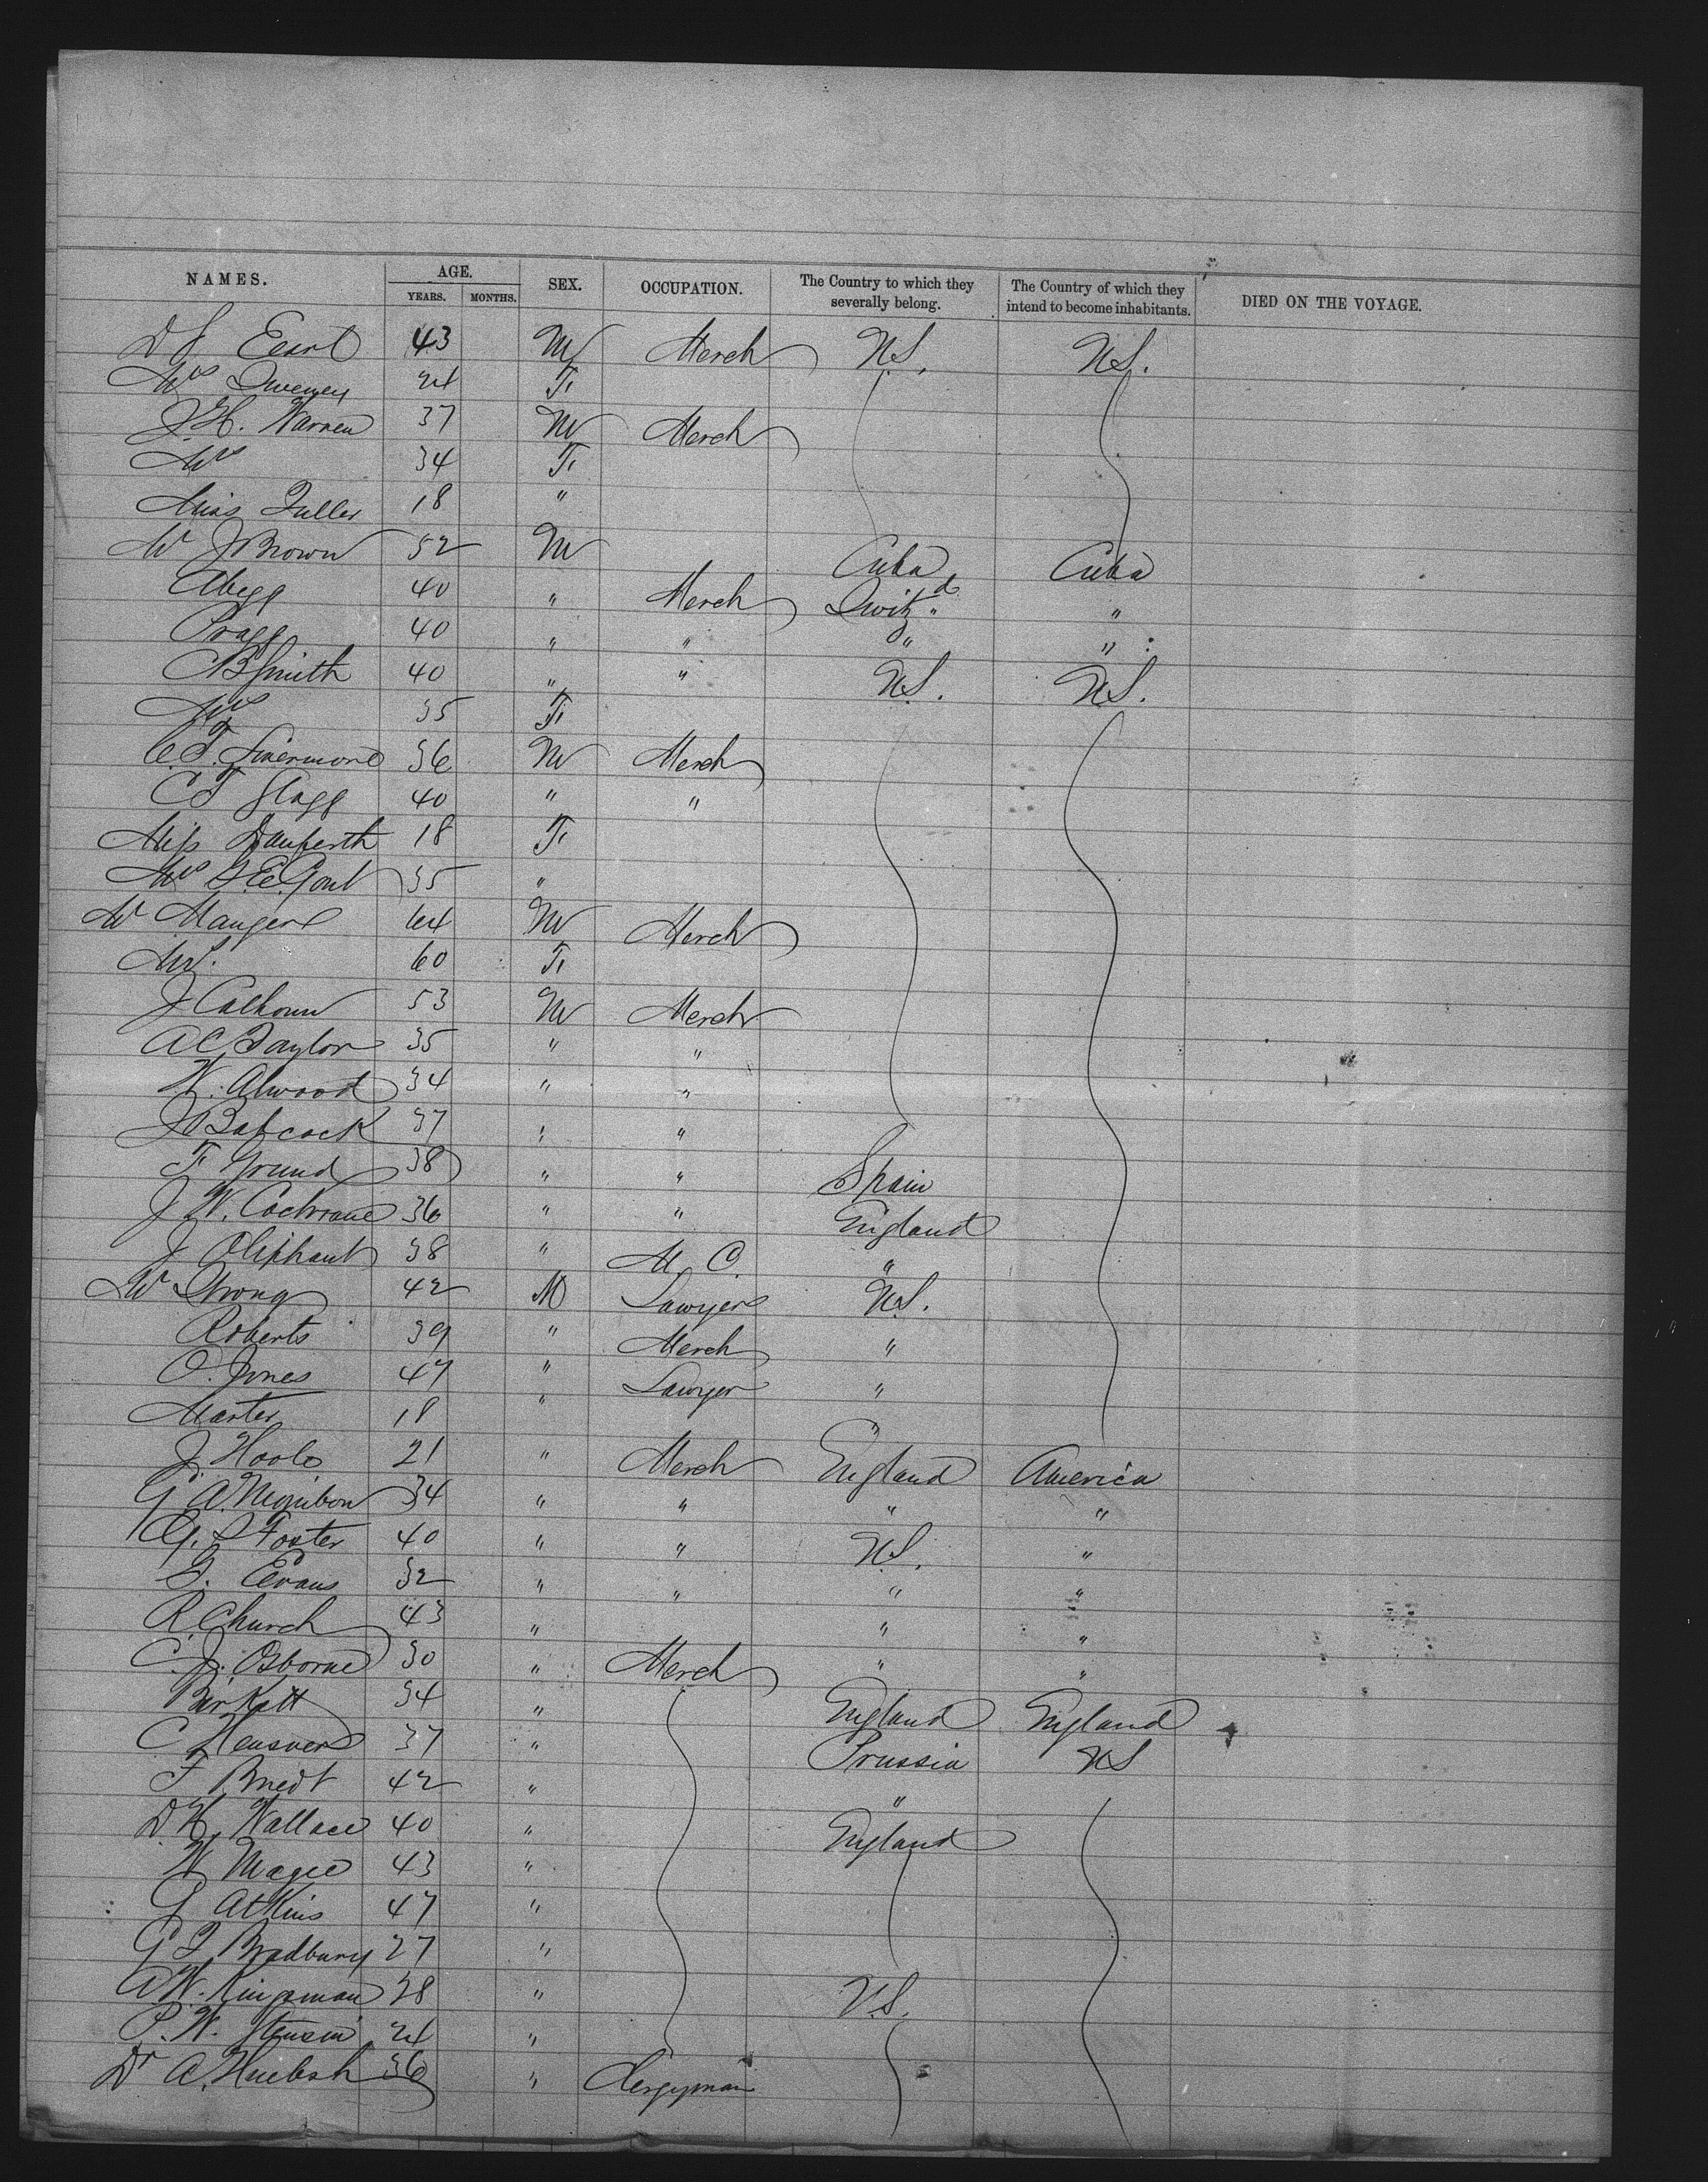 NAMES. AGE. SEX. OCCUPATION. The Country to which they severally belong. The Country of which they intend to become inhabitants. DIED ON THE VOYAGE.
YEARS. MONTHS.
D S Earl 43 M Merch U.S. U.S.
Mrs 24 F
J. H. Warren 37 M Merch
Mrs 34 F
Miss Fuller 18 "
Mr J Brown 52 M Cuba Cuba
Abegg 40 " Merch Switzd "
Pragg 40 " " " "
C B Smith 40 " " U.S. U.S.
Mrs 35 F
C. F. Livermore 36 M Merch
C F Flagg 40 " "
Miss Danforth 18 F
Mrs 35 "
Mr Mauger 64 M Merch
Mrs. 60 F
J Calhoun 53 M Merch
A C Taylor 35 " "
W. Atwood 34 " "
J Babcock 37 " "
F Grund 38 " " Spain
J W. Cochrane 36 " " England
J Oliphant 38 " M. C. "
Mr Strong 42 M Lawyer U.S.
Roberts 39 " Merch "
O. Jones 47 " Lawyer "
Master 18 " "
J. Hoole 21 " Merch England America
G A 34 " " " "
G. S Foster 40 " " U.S. "
G. Evans 32 " " " "
R. Church 43 " " "
C. J. Osborne 30 " Merch " "
Birkett 34 " England England
C 37 " Prussia US
F Bredt 42 " "
D. H. Wallace 40 " England
W Magee 43 "
G Atkins 47 "
G F Bradbury 27 "
A W. Kingman 38 " U.S.
P. W. 24 "
Dr A. Huebsh 36 " Clergyman